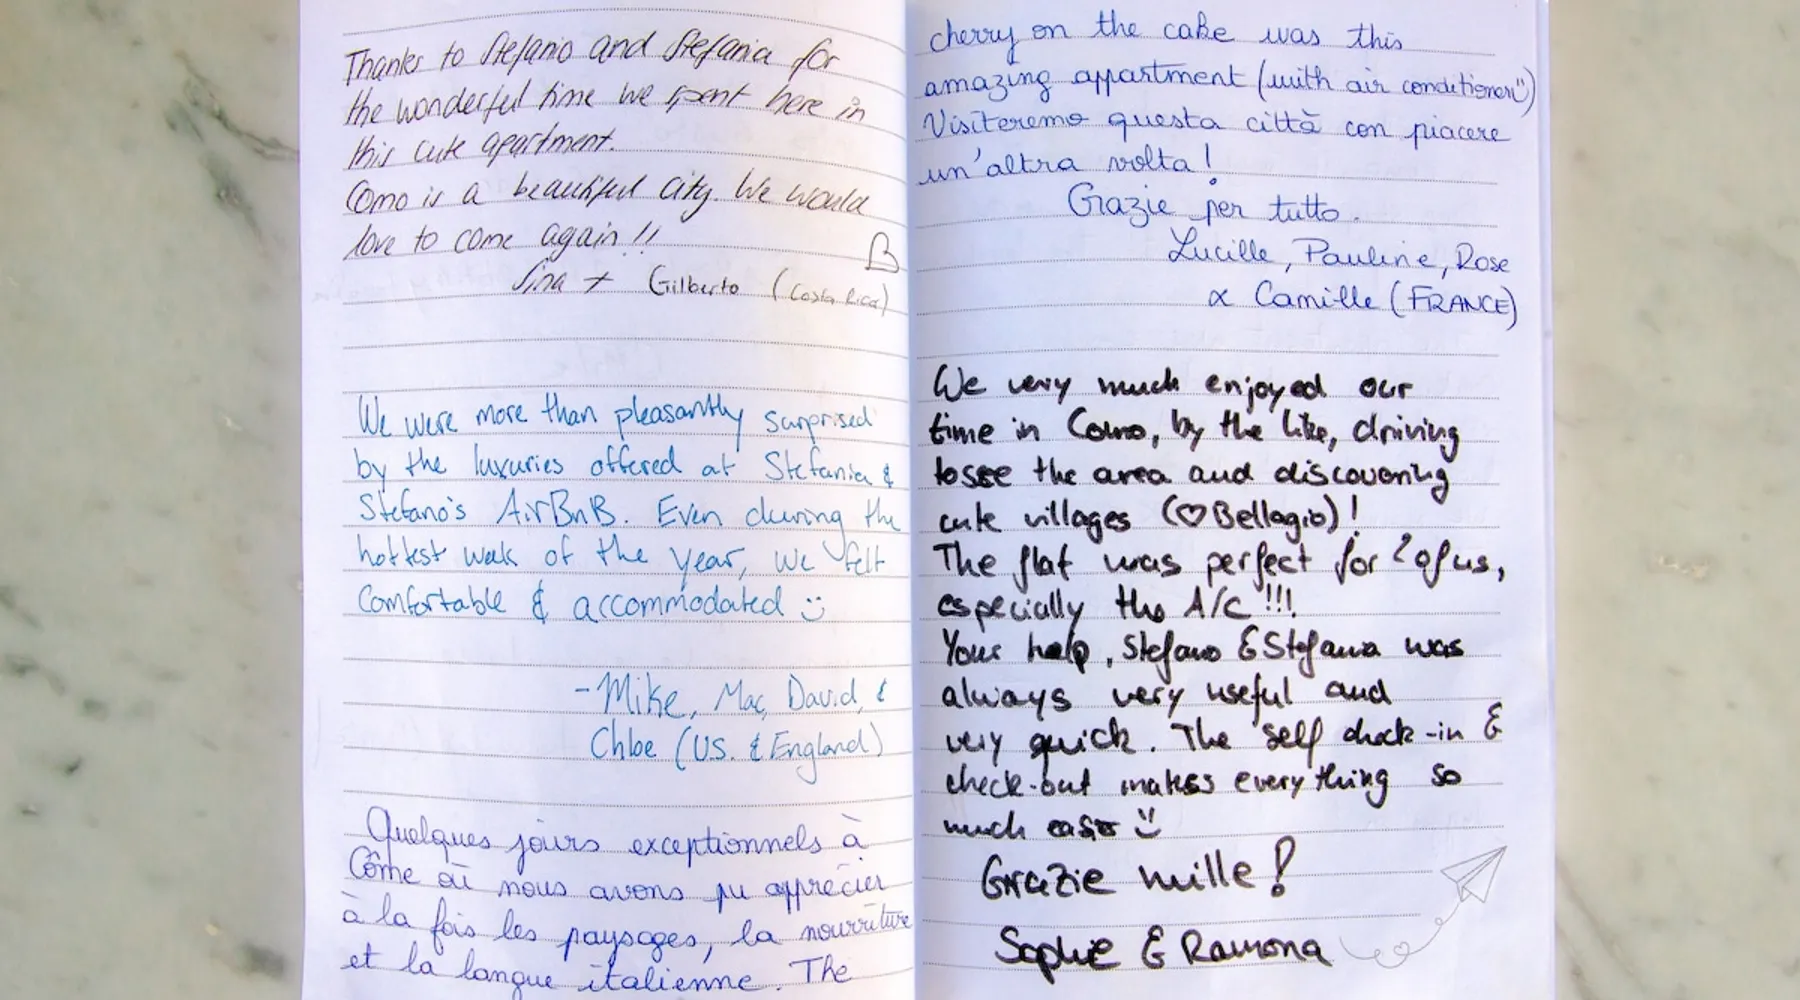 Thanks to Stefano and Stefania for
the wonderful time we spent here in
this cute apartment.
Como is a beautiful city. We would
love to come again!!
Sina + Gilberto (Costa Rica)
We were more than pleasantly surprised
by the luxuries offered at Stefania &
Stefano's AirBnB. Even during the
hottest week of the year, we felt
comfortable & accommodated :)
-Mike, Mac, David, &
Chloe (US. & England)
Quelques jours exceptionnels à
Côme où nous avons pu apprécier
à la fois les paysages, la nourriture
et la langue italienne. The
cherry on the cake was this
amazing appartment (with air conditioner :))
Visiteremo questa città con piacere
un'altra volta!
Grazie per tutto.
Lucille, Pauline, Rose
& Camille (FRANCE)
We very much enjoyed our
time in Como, by the like, driving
to see the area and discovering
cute villages (♡ Bellagio)!
The flat was perfect for 2 of us,
especially the A/C!!!
Your help, Stefano & Stefania was
always very useful and
very quick. The self check-in &
check-out makes everything so
much easier :)
Grazie mille!
Sophie & Ramona